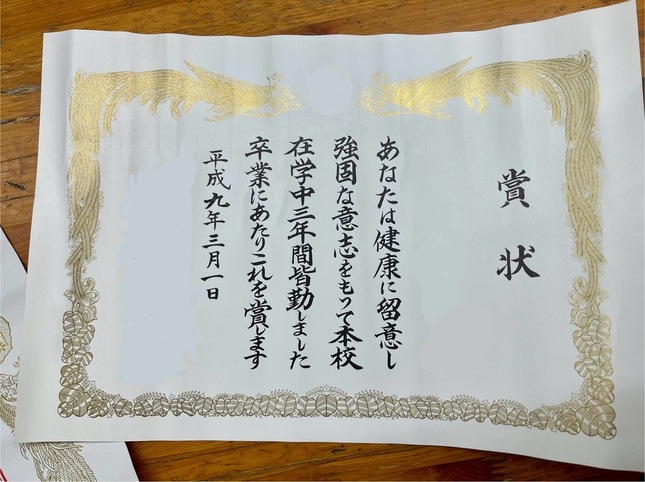 賞状
あなたは健康に留意し
強固な意志をもって本校
在学中三年間皆勤しました
卒業にあたりこれを賞します
平成九年三月一日